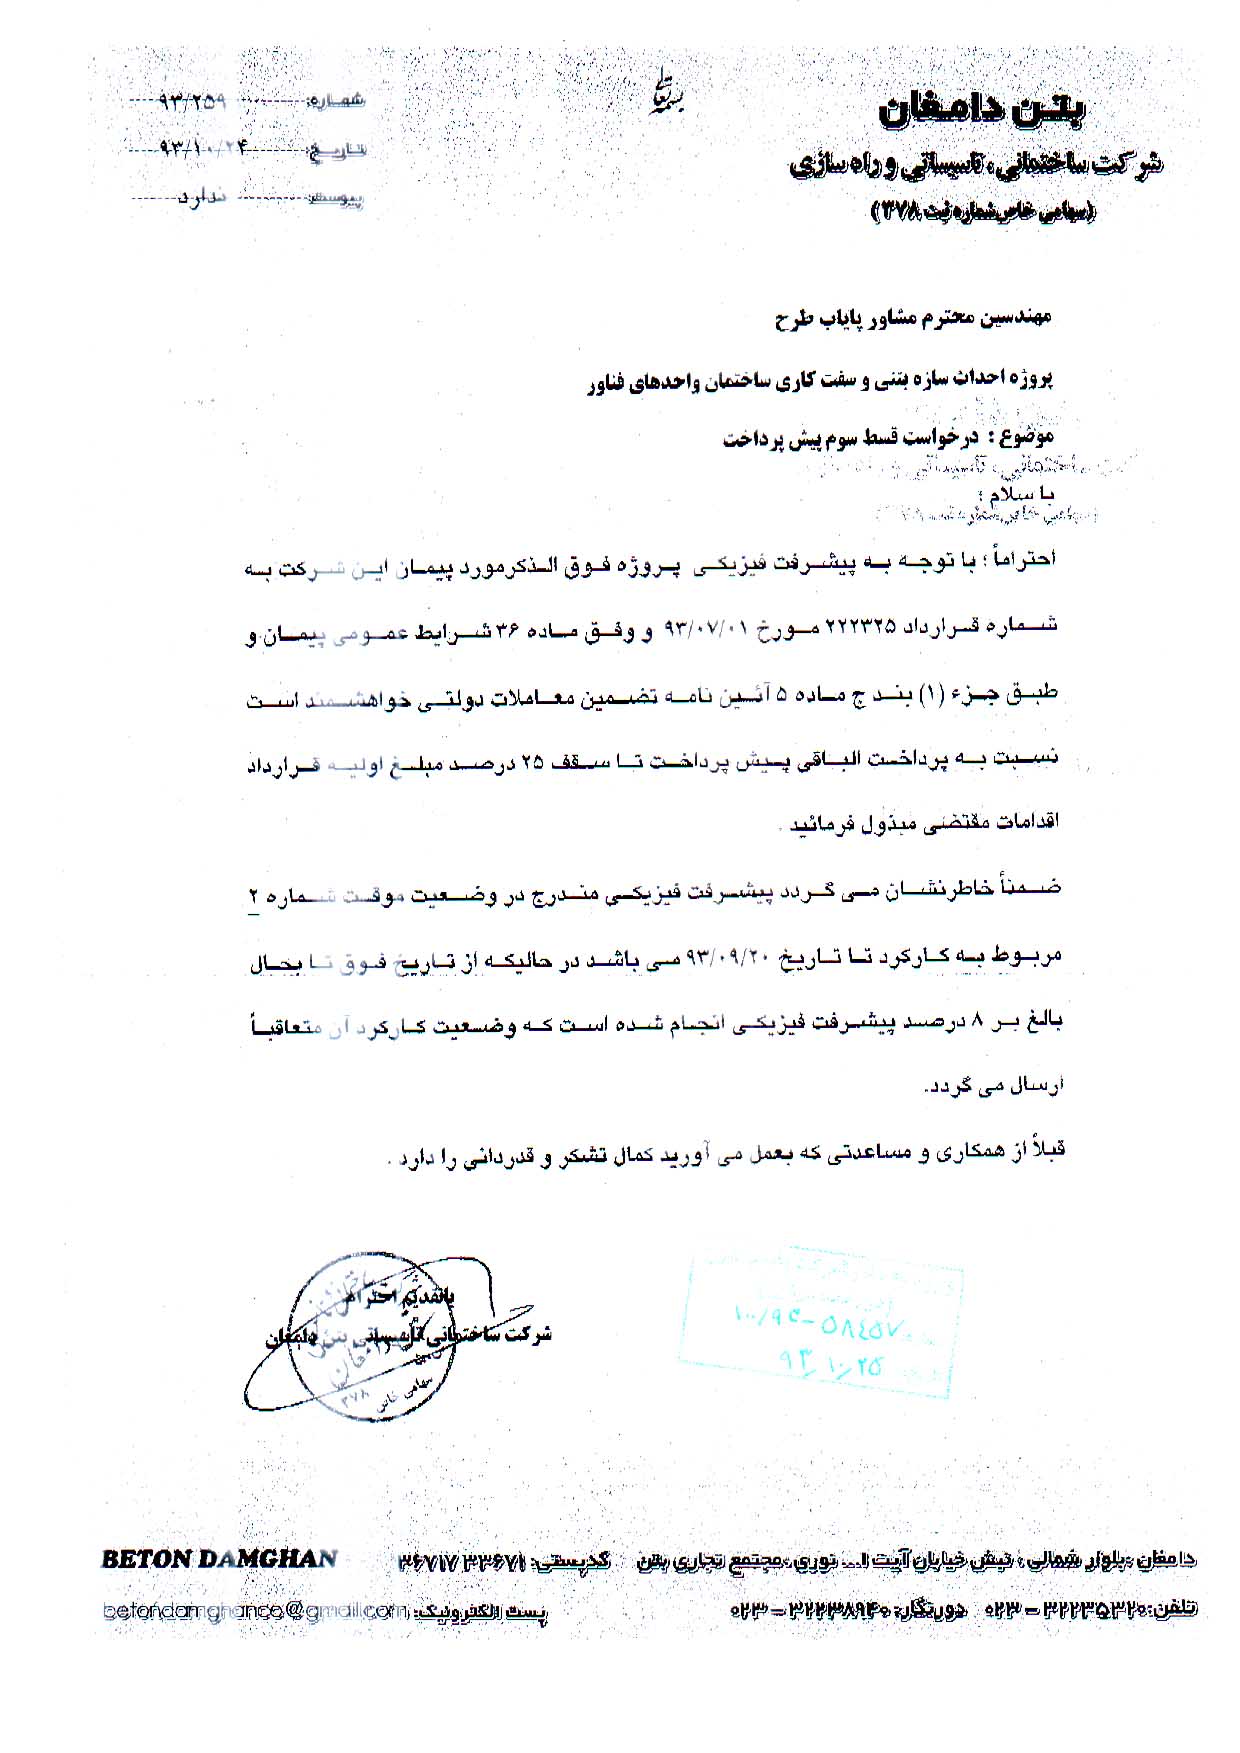 بسمه تعالی
بتن دامغان
شرکت ساختمانی ، تاسیساتی و راه سازی
(سهامی خاص شماره ثبت ۳۷۸)
شماره: ۹۳/۲۵۹
تاریخ: ۹۳/۱۰/۲۴
پیوست: ندارد
مهندسین محترم مشاور پایاب طرح
پروژه احداث سازه بتنی و سفت کاری ساختمان واحدهای فناور
موضوع : درخواست قسط سوم پیش پرداخت
با سلام ؛
احتراماً ؛ با توجه به پیشرفت فیزیکی پروژه فوق الذکرمورد پیمان این شرکت به
شماره قرارداد ۲۲۲۳۲۵ مورخ ۹۳/۰۷/۰۱ و وفق ماده ۳۶ شرایط عمومی پیمان و
طبق جزء (۱) بند ج ماده ۵ آئین نامه تضمین معاملات دولتی خواهشمند است
نسبت به پرداخت الباقی پیش پرداخت تا سقف ۲۵ درصد مبلغ اولیه قرارداد
اقدامات مقتضی مبذول فرمائید .
ضمناً خاطرنشان می گردد پیشرفت فیزیکی مندرج در وضعیت موقت شماره ۲
مربوط به کارکرد تا تاریخ ۹۳/۰۹/۲۰ می باشد در حالیکه از تاریخ فوق تا بحال
بالغ بر ۸ درصد پیشرفت فیزیکی انجام شده است که وضعیت کارکرد آن متعاقباً
ارسال می گردد.
قبلاً از همکاری و مساعدتی که بعمل می آورید کمال تشکر و قدردانی را دارد .
باتقدیم احترام
شرکت ساختمانی تاسیساتی بتن دامغان
سهامی خاص
۳۷۸
۱۰۰/۹۳-۵۸۴۵۷
۹۳/۱۰/۲۵
دامغان ،بلوار شمالی ، نبش خیابان آیت ا... نوری ،مجتمع تجاری بتن کدپستی: ۳۶۷۱۷۳۳۶۷۱ BETON DAMGHAN
تلفن: ۳۲۲۳۵۳۲۰ – ۰۲۳ دورنگار: ۳۲۲۳۸۹۴۰ – ۰۲۳ پست الکترونیک: betondamghanco@gmail.com